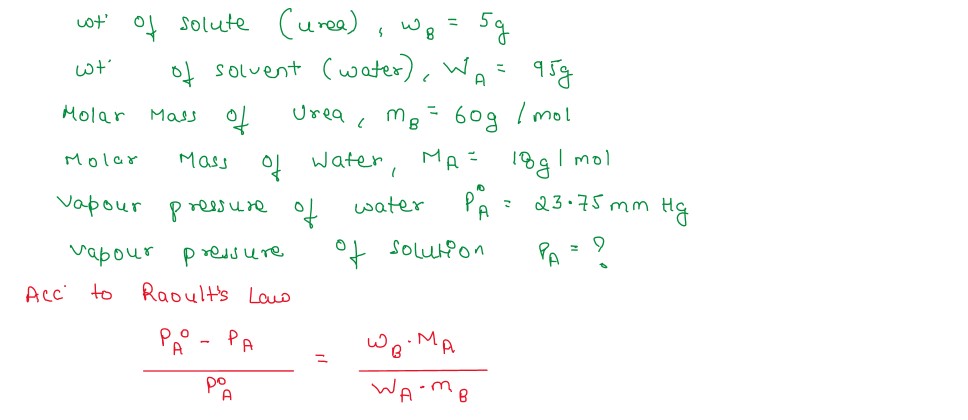 wt. of solute (urea), w_B = 5g
wt. of solvent (water), W_A = 95g
Molar Mass of Urea, m_B = 60g / mol
Molar Mass of Water, M_A = 18g / mol
Vapour pressure of water P_A^0 = 23.75 mm Hg
Vapour pressure of solution P_A = ?
Acc. to Raoult's Law
(P_A^0 - P_A) / P_A^0 = (w_B . M_A) / (W_A . m_B)